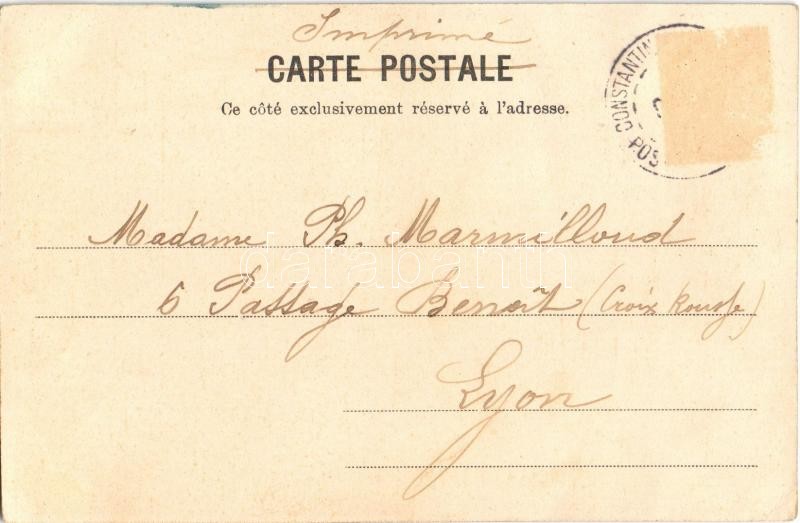 Imprimé
CARTE POSTALE
Ce côté exclusivement réservé à l'adresse.
CONSTANTIN
POS
Madame Ph. Marmilloud
6 Passage Benoît (Croix Rousse)
Lyon
darabanth